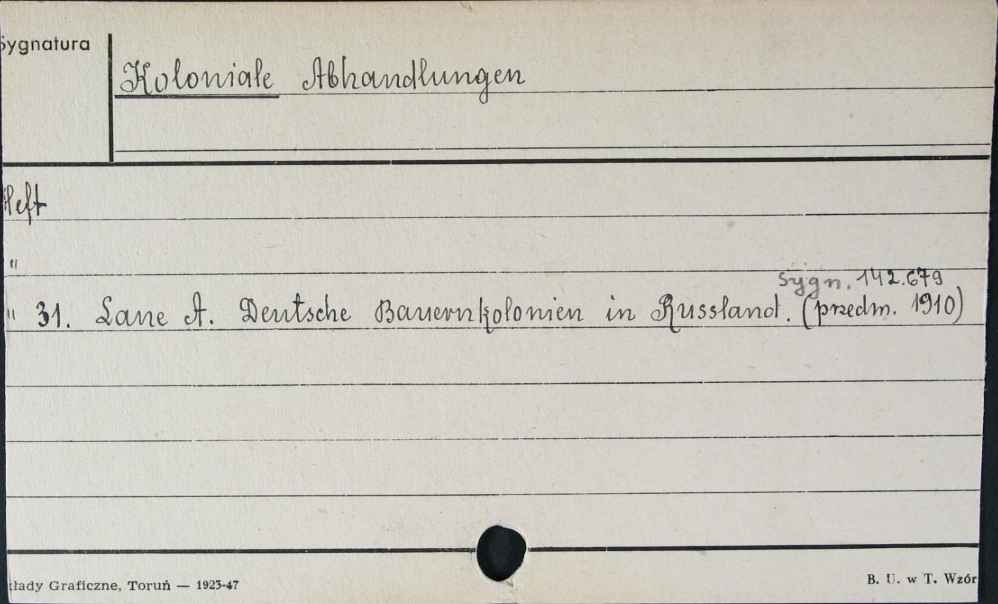 Sygnatura
Koloniale Abhandlungen
Heft
"
Sygn. 142.679
" 31. Lane A. Deutsche Bauernkolonien in Russland. (przedm. 1910)
kłady Graficzne, Toruń — 1923-47
B. U. w T. Wzór